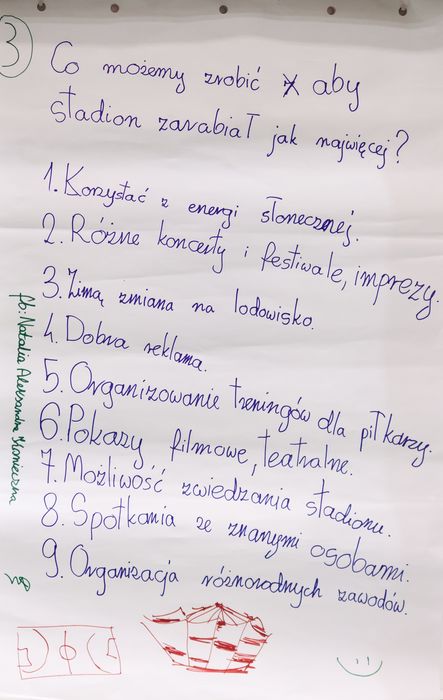 3
Co możemy zrobić aby
stadion zarabiał jak najwięcej?
1. Korzystać z energi słonecznej.
2. Różne koncerty i festiwale, imprezy.
3. Zimą zmiana na lodowisko.
4. Dobra reklama.
5. Organizowanie treningów dla piłkarzy.
6. Pokazy filmowe, teatralne.
7. Możliwość zwiedzania stadionu.
8. Spotkania ze znanymi osobami.
9. Organizacja różnorodnych zawodów.
fb: Natalia Aleksandra